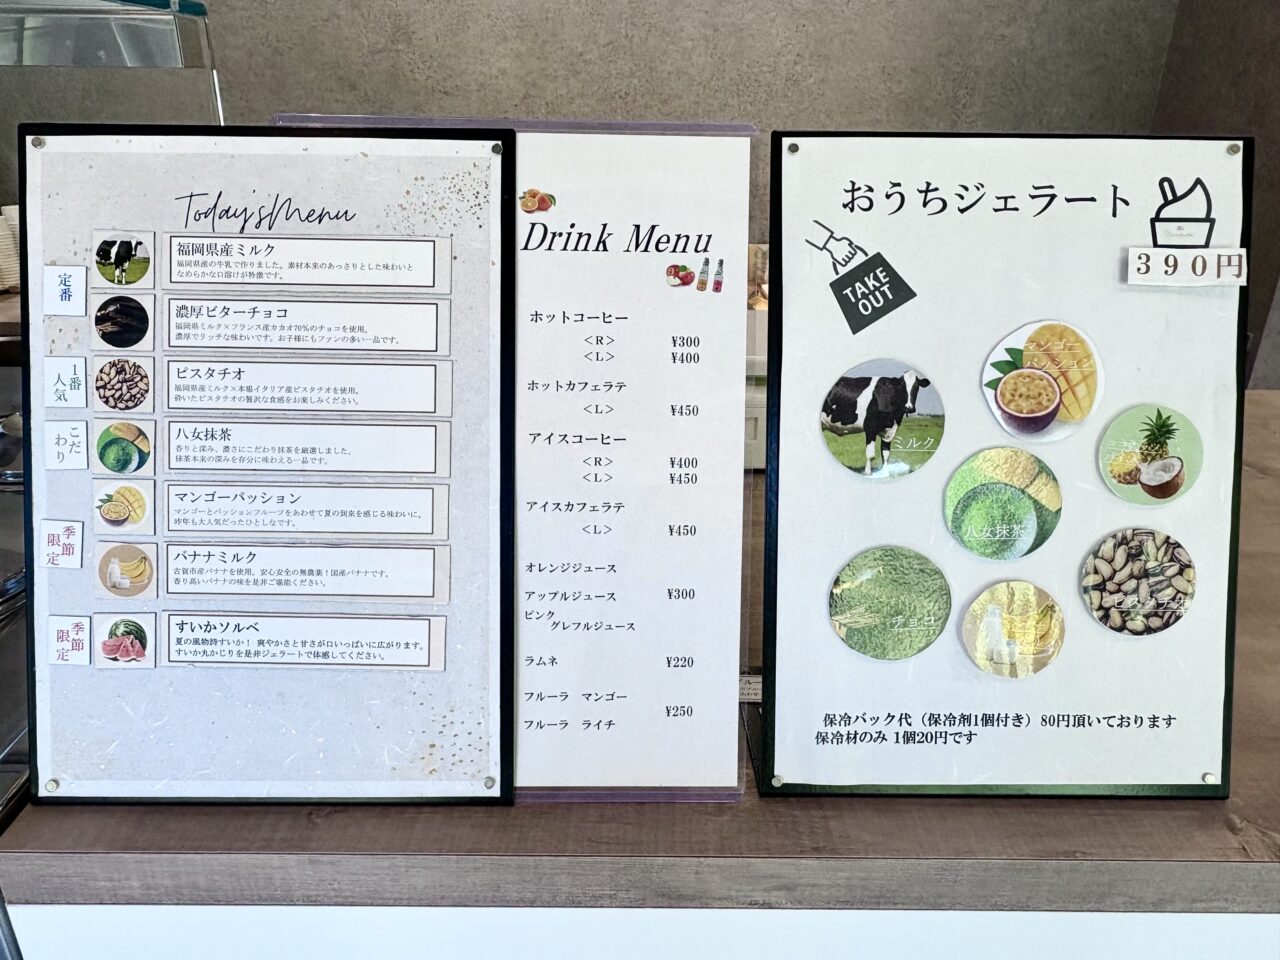 Today's Menu
定番
福岡県産ミルク
福岡県産の牛乳で作りました。素材本来のあっさりとした味わいと
なめらかな口溶けが特徴です。
濃厚ビターチョコ
福岡県ミルク×フランス産カカオ70%のチョコを使用。
濃厚でリッチな味わいです。お子様にもファンの多い一品です。
1番
人気
ピスタチオ
福岡県産ミルク×本場イタリア産ピスタチオを使用。
砕いたピスタチオの贅沢な食感をお楽しみください。
こだ
わり
八女抹茶
香りと深み、濃さにこだわり抹茶を厳選しました。
抹茶本来の深みを存分に味わえる一品です。
マンゴーパッション
マンゴーとパッションフルーツをあわせて夏の到来を感じる味わいに。
昨年も大人気だったひとしなです。
季節
限定
バナナミルク
古賀市産バナナを使用。安心安全の無農薬！国産バナナです。
香り高いバナナの味を是非ご堪能ください。
季節
限定
すいかソルベ
夏の風物詩すいか！ 爽やかさと甘さが口いっぱいに広がります。
すいか丸かじりを是非ジェラートで体感してください。
Drink Menu
ホットコーヒー
＜R＞ ¥300
＜L＞ ¥400
ホットカフェラテ
＜L＞ ¥450
アイスコーヒー
＜R＞ ¥400
＜L＞ ¥450
アイスカフェラテ
＜L＞ ¥450
オレンジジュース
アップルジュース ¥300
ピンク
グレフルジュース
ラムネ ¥220
フルーラ マンゴー
¥250
フルーラ ライチ
おうちジェラート
390円
TAKE
OUT
マンゴー
パッション
ミルク
八女抹茶
ピスタチオ
チョコ
保冷バック代（保冷剤1個付き）80円頂いております
保冷材のみ 1個20円です